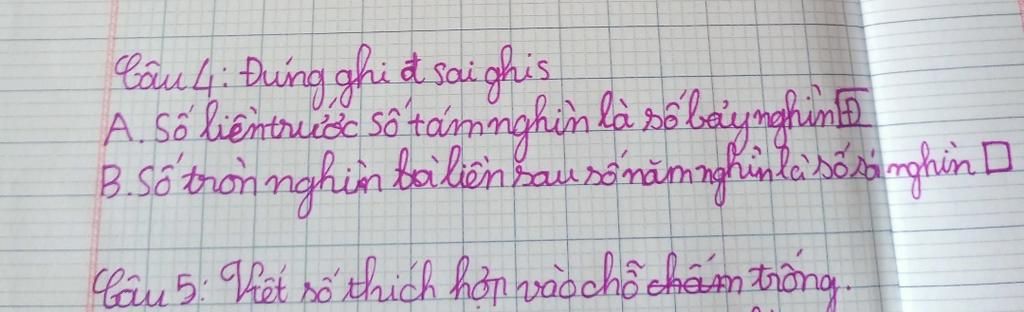 Câu 4: Đúng ghi đ sai ghi s
A. Số liền trước số tám nghìn là số bảy nghìn đ
B. Số tròn nghìn bé liền sau số năm nghìn là số sáu nghìn
Câu 5: Viết số thích hợp vào chỗ chấm trống.